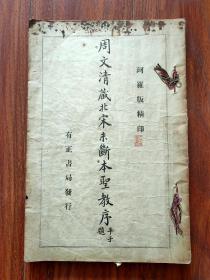 珂羅版精印
周文清藏北宋未斷本聖教序
平子題
有正書局發行